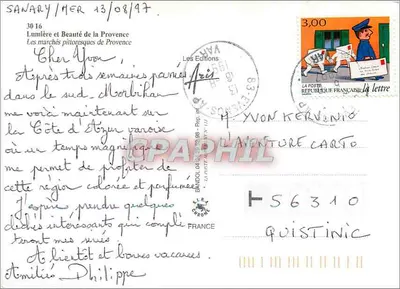 SANARY/MER 13/08/97
30 16
Lumière et Beauté de la Provence
Les marchés pittoresques de Provence
Cher Yvon,
Après trois semaines passées
dans le sud-Morbihan
me voilà maintenant sur
la Côte d'Azur varoise
où un temps magnifique
me permet de profiter de
cette région colorée et parfumée
J'espère prendre quelques
clichés intéressants qui complè
teront mes séries
A bientôt et bonnes vacances.
Amitiés Philippe
Les Editions
Aris
FRANCE
3,00
LA POSTE
REPUBLIQUE FRANÇAISE
la lettre
VAR
M. YVON KERVINIO
AVENTURE CARTO
56310
QUISTINIC
CPAPHIL